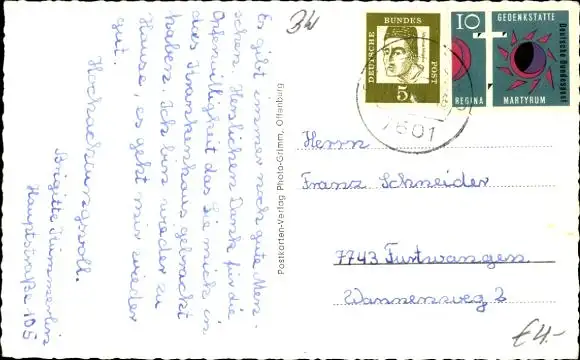 34
Es gibt immer noch gute Men-
schen. Herzlichen Dank für die
Opferwilligkeit das Sie mich in
das Krankenhaus gebracht
haben. Ich bin wieder zu
Hause, es geht mir wieder
gut.
Hochachtungsvoll.
Brigitte Kümmerlin
Hauptstraße 105
Postkarten-Verlag Photo-Grimm, Offenburg
DEUTSCHE BUNDES POST
5
10
REGINA
GEDENKSTÄTTE
Deutsche Bundespost
MARTYRUM
7601
Herrn
Franz Schneider
7743 Furtwangen
Wannenweg 2
€4.-